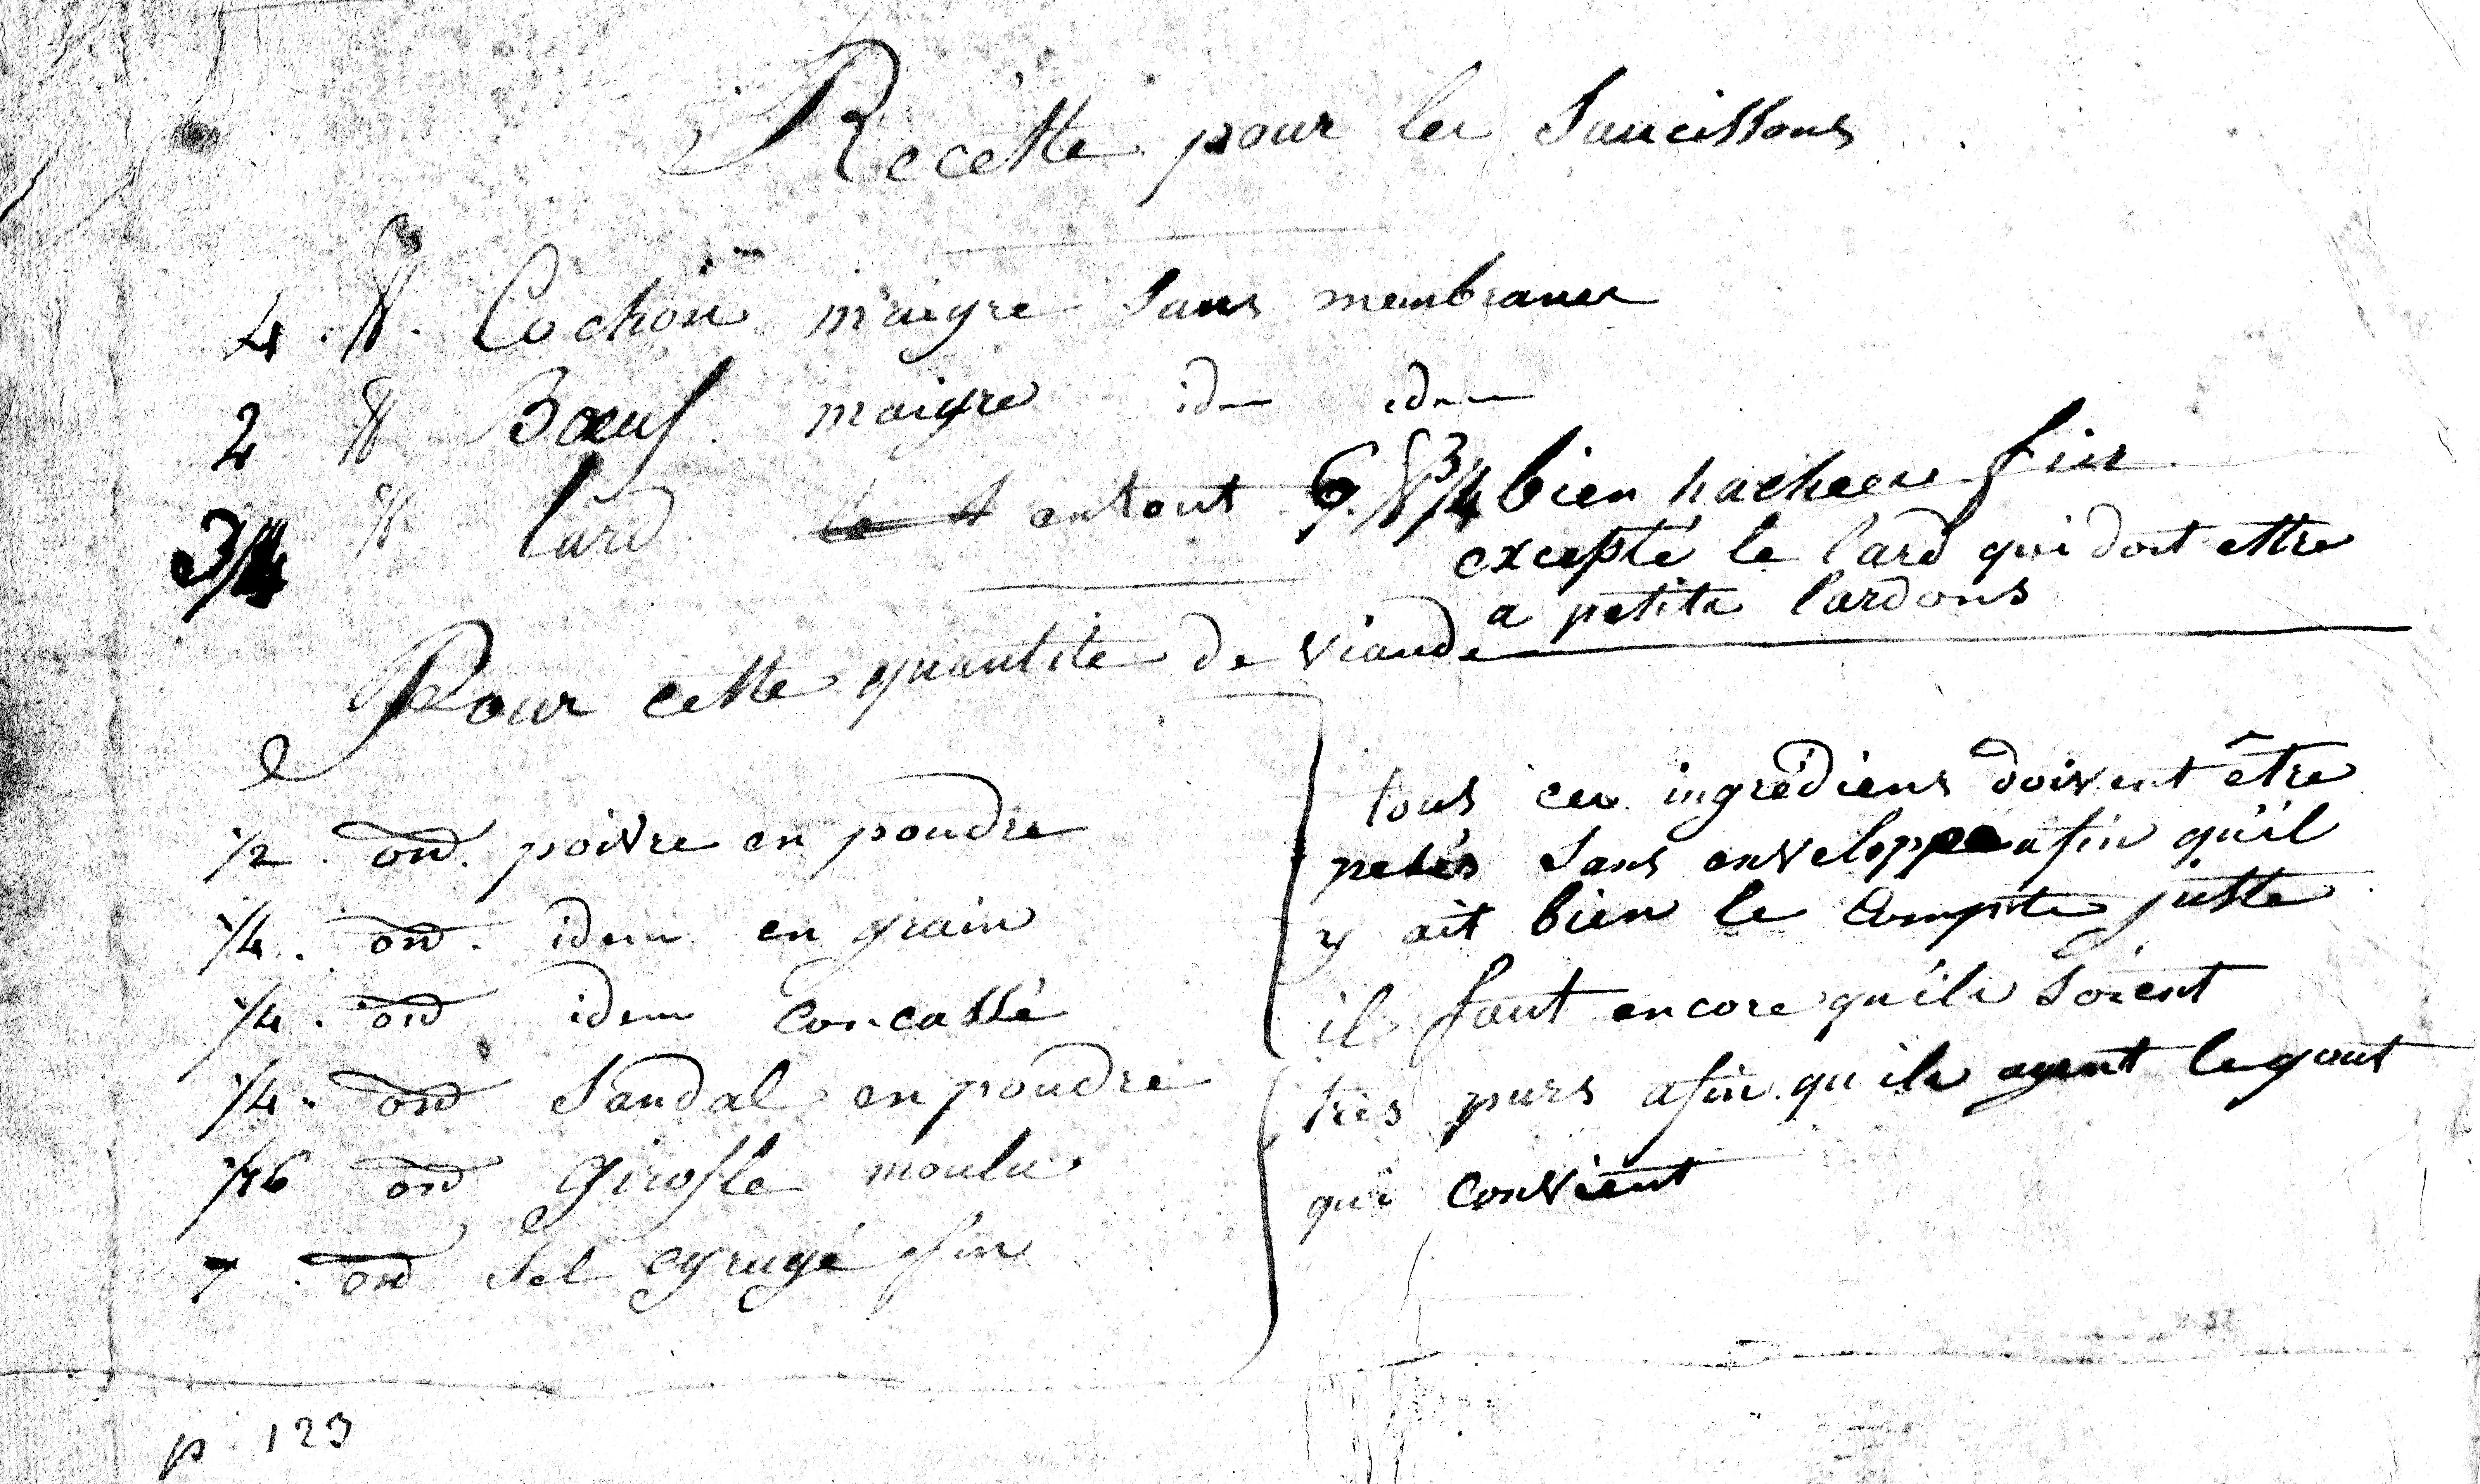 Recette pour les Saucissons
4 ℔ Cochon maigre sans membranes
2 ℔ Boeuf maigre idem idem
3/4 ℔ lard en tout 6 ℔ 3/4 bien hachées fin
excepté le lard qui doit esttre
a petits lardons
Pour cette quantité de viande
1/2 . on. poivre en poudre
1/4 . on . idem en grain
1/4 . on idem concassé
1/4 . on Sandal en poudre
1/16 on Girofle moulu
7 . on Sel egrugé fin
tous ces ingrédiens doivent être
pesés sans enveloppe afin qu'il
y ait bien le Compte juste
il faut encore qu'ils soient
très purs afin qu'ils ayent le gout
qui convient
p 129